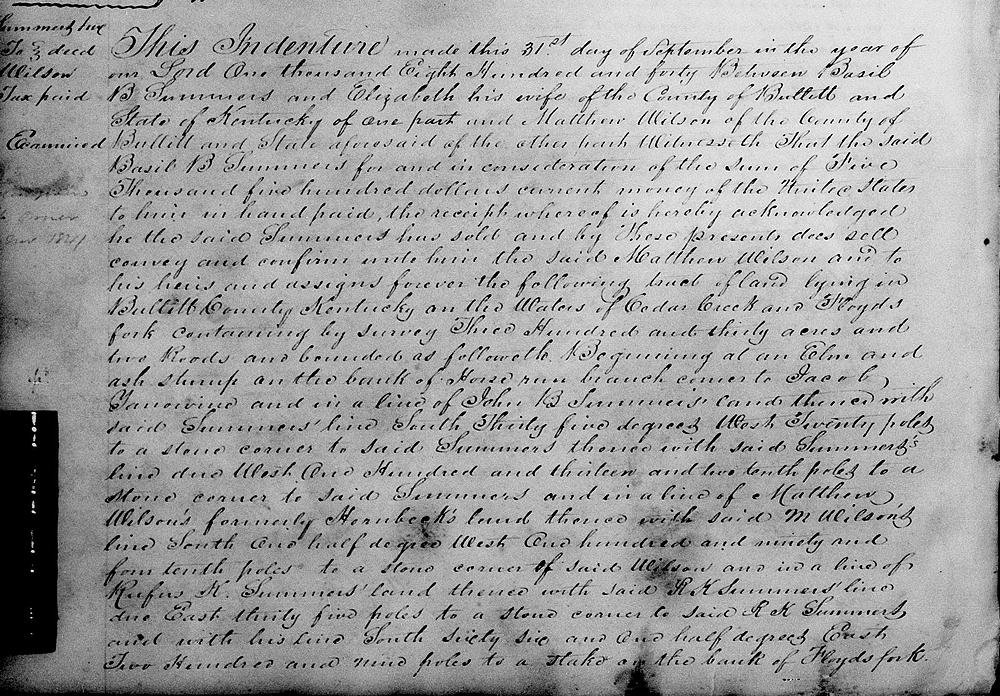 Summers &c
To } deed
Wilson
Tax paid
Examined
This Indenture made this 31.st day of September in the year of
our Lord One thousand Eight Hundred and forty Between Basil
B Summers and Elizabeth his wife of the County of Bullitt and
State of Kentucky of one part and Matthew Wilson of the County of
Bullitt and State aforesaid of the other part Witnesseth That the said
Basil B Summers for and in consideration of the sum of Five
Thousand five hundred dollars current money of the United States
to him in hand paid, the receipt whereof is hereby acknowledged
he the said Summers has sold and by these presents does sell
convey and confirm unto him the said Matthew Wilson and to
his heirs and assigns forever the following tract of land lying in
Bullitt County Kentucky on the Waters of Cedar Creek and Floyds
fork containing by survey Three Hundred and thirty acres and
two Roods and bounded as followeth Beginning at an Elm and
ash stump on the bank of Horse run branch corner to Jacob
and in a line of John B Summers' land thence with
said Summers' line South Thirty five degrees West Twenty poles
to a stone corner to said Summers thence with said Summers's
line due West One Hundred and thirteen and two tenth poles to a
stone corner to said Summers and in a line of Matthew
Wilson's formerly Hornbeck's land thence with said M Wilson's
line South One half degree West One hundred and ninety and
four tenth poles to a stone corner of said Wilson and in a line of
Rufus K. Summers' land thence with said R K Summers' line
due East thirty five poles to a stone corner to said R K Summers
and with his line South sixty six and One half degrees East
Two Hundred and nine poles to a stake on the bank of Floyds fork.